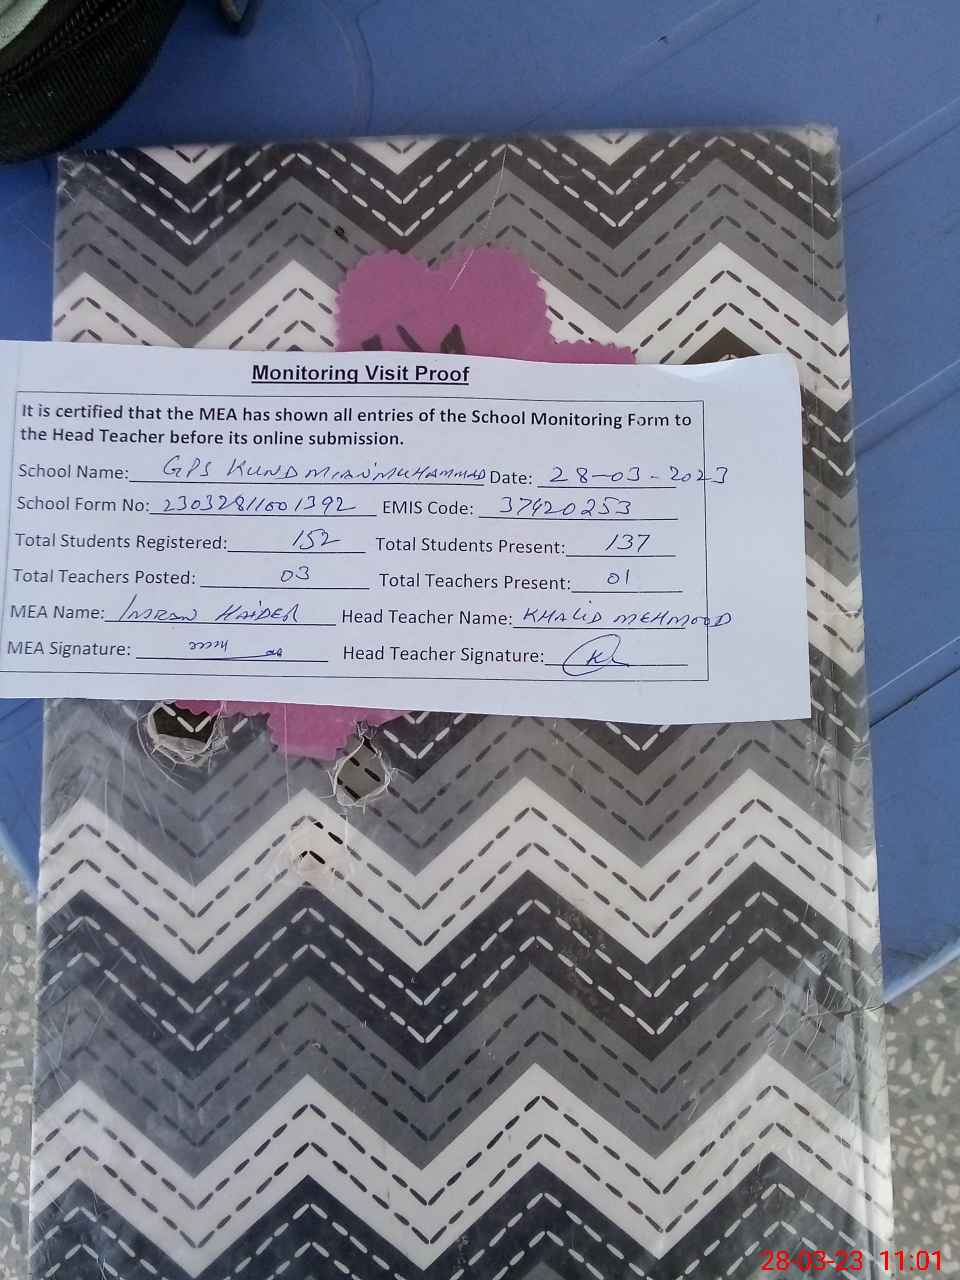 Monitoring Visit Proof
It is certified that the MEA has shown all entries of the School Monitoring Form to
the Head Teacher before its online submission.
School Name: GPS KUND MIAN MUHAMMAD Date: 28-03-2023
School Form No: 23032811001392 EMIS Code: 37420253
Total Students Registered: 152 Total Students Present: 137
Total Teachers Posted: 03 Total Teachers Present: 01
MEA Name: IMRAN HAIDER Head Teacher Name: KHALID MEHMOOD
MEA Signature: Head Teacher Signature:
28-03-23 11:01